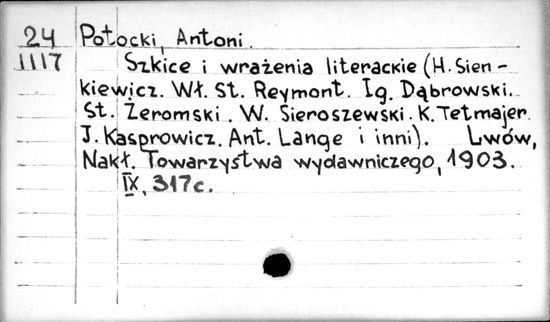 24 Potocki, Antoni.
1117 Szkice i wrażenia literackie (H. Sien-
kiewicz. Wł. St. Reymont. Ig. Dąbrowski.
St. Żeromski. W. Sieroszewski. K. Tetmajer
J. Kasprowicz. Ant. Lange i inni). Lwów,
Nakł. Towarzystwa wydawniczego, 1903.
IX, 317c.